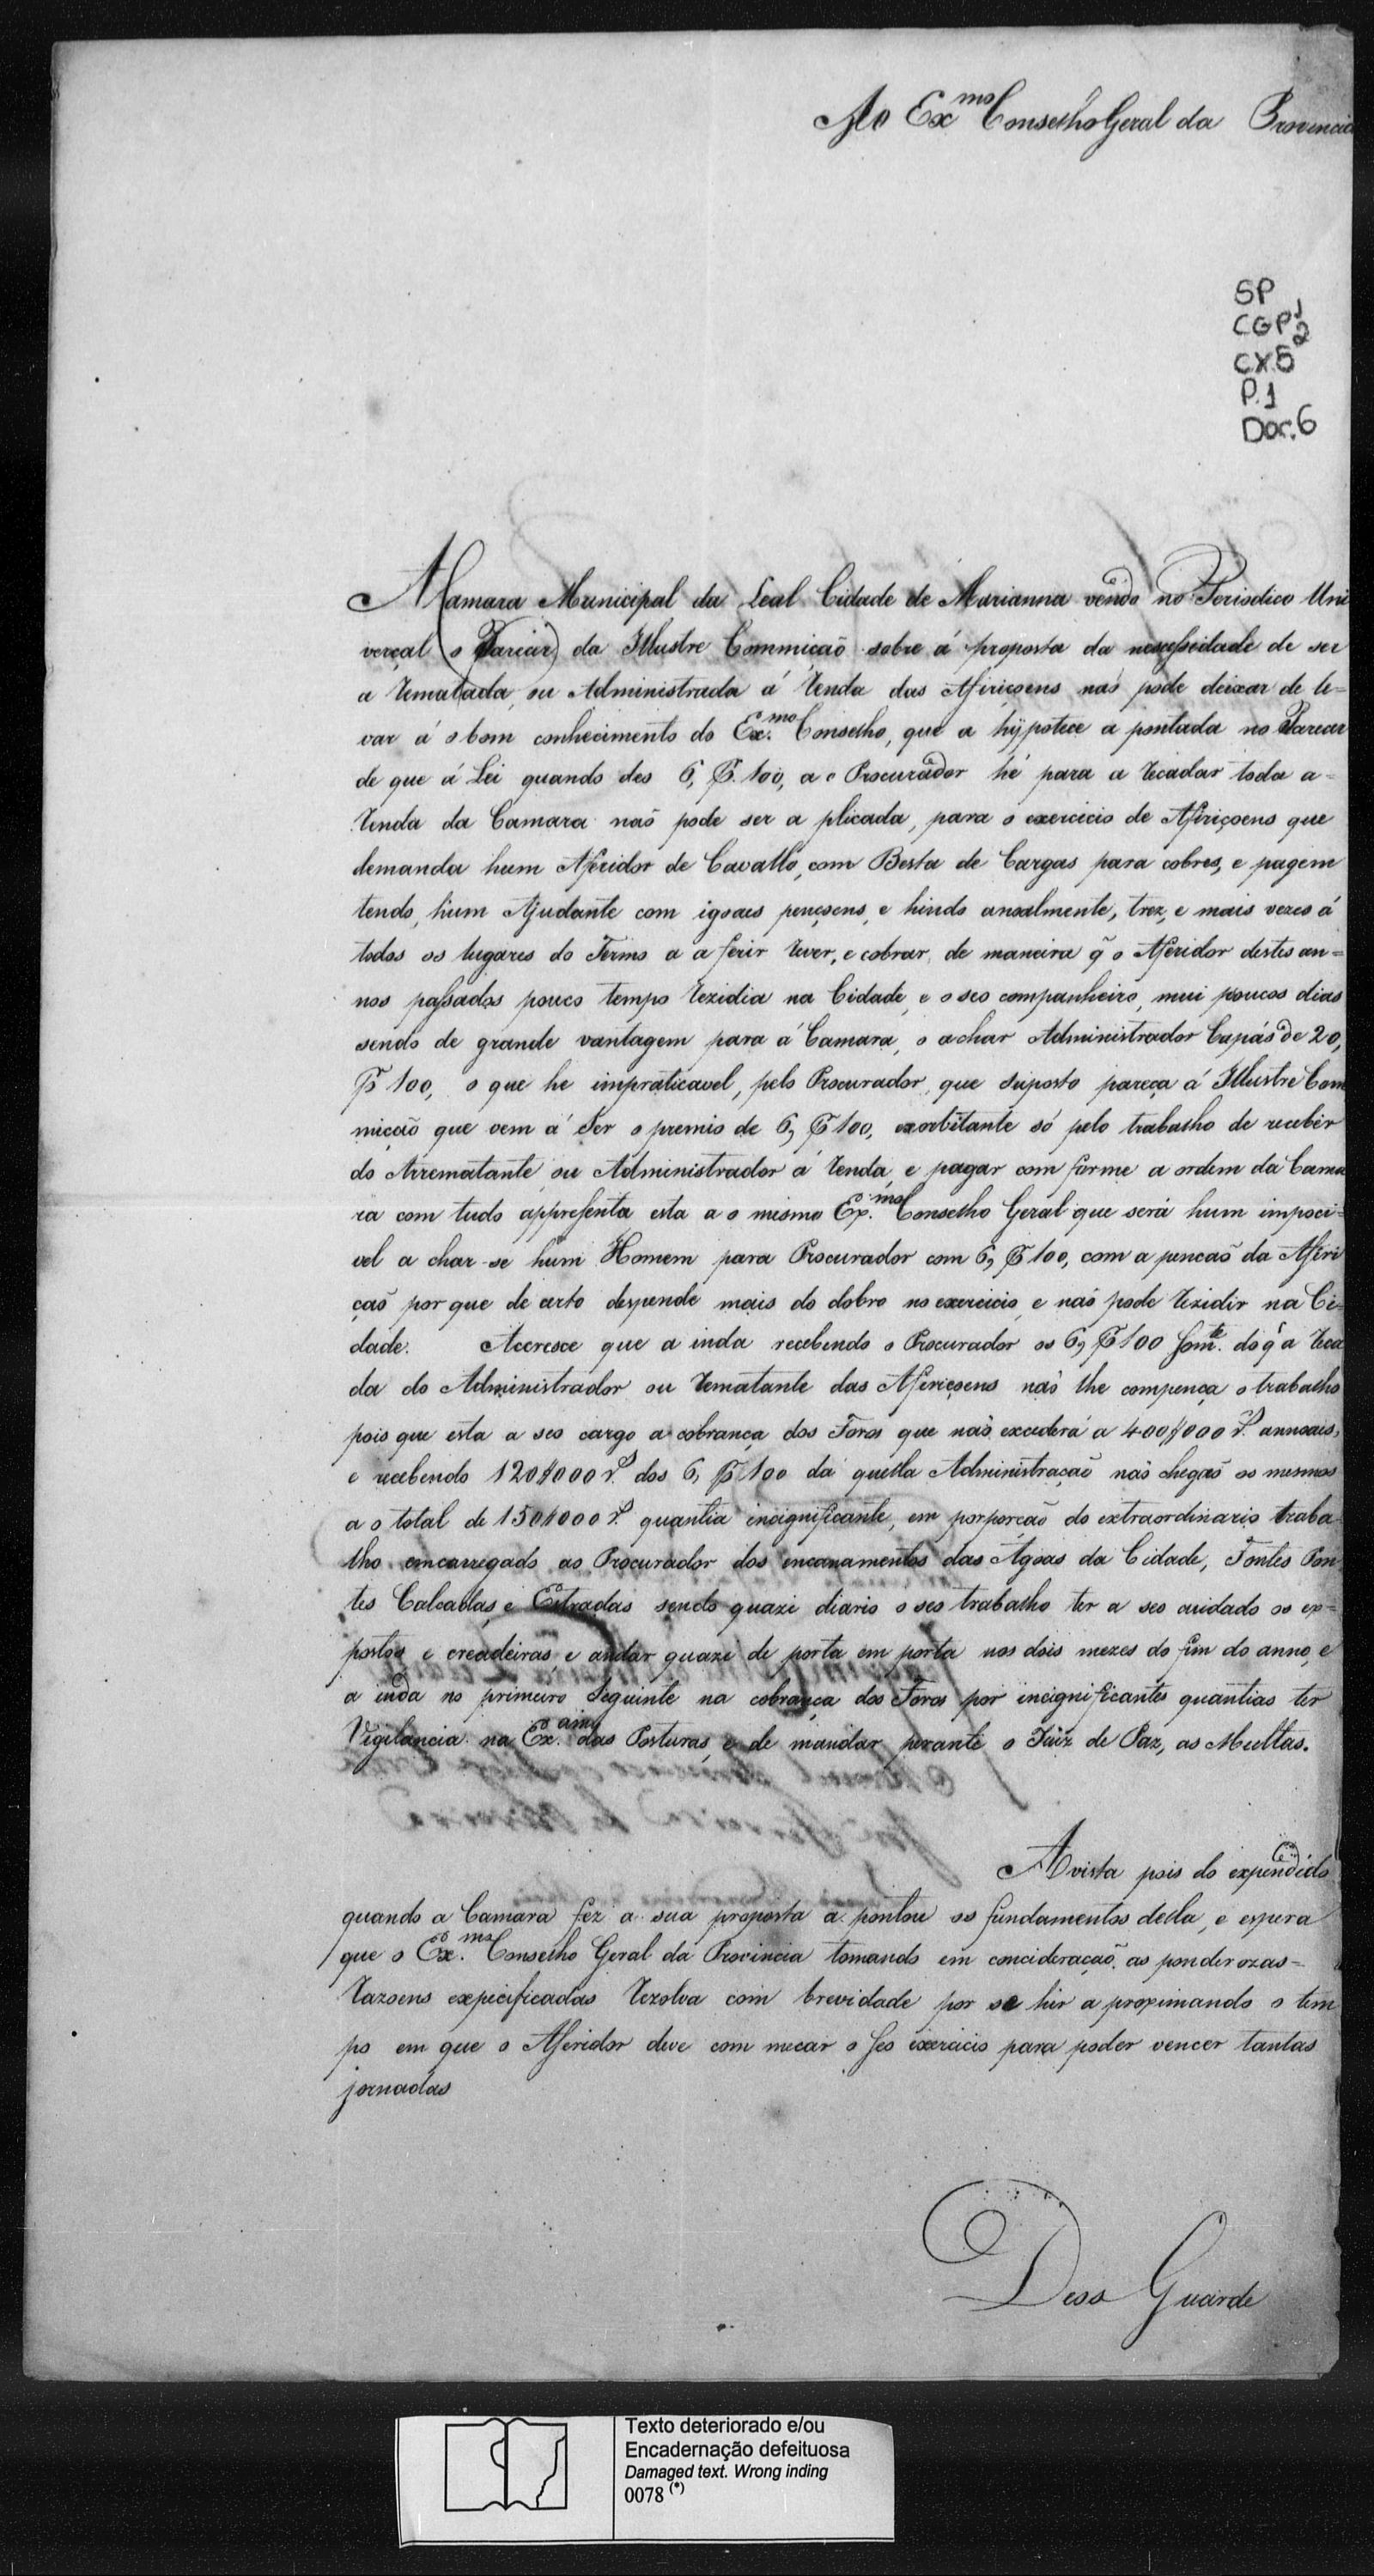 Ao Ex.mo Conselho Geral da Provincia
SP
CGP 1
2
CX.5
P.1
Doc.6
A Camara Municipal da Leal Cidade de Marianna vendo no Periodico Uni
verçal o Parecer da Illustre Commição sobre á proposta da necessidade de ser
a rematada, ou Administrada á renda das Afiriçoens naõ pode deixar de le=
var á o bom conhecimento do Ex.mo Conselho, que a hypotece a pontada no Parecer
de que á Lei quando deo 6, P. 100, a o Procurador hé para a recadar toda a=
renda da Camara naõ pode ser a plicada, para o exercicio de Afiriçoens que
demanda hum Aferidor de Cavallo, com Besta de Cargas para cobres, e pagem
tendo, hum Ajudante com igoaes pençoens, e hindo anoalmente, trez, e mais vezes á
todos os lugares do Termo a a ferir rever, e cobrar, de maneira q̃ o Aferidor destes an=
nos passados pouco tempo rezidia na Cidade, e o seo companheiro, mui poucos dias
sendo de grande vantagem para á Camara, o achar Administrador Capás de 20,
P 100, o que he impraticavel, pelo Procurador, que suposto pareça á Illustre Com
mição que vem á ser o premio de 6, P 100, exorbitante só pelo trabalho de receber
do Arrematante, ou Administrador á renda, e pagar com forme a ordem da Cama
ra com tudo appresenta esta a o mesmo Ex.mo Conselho Geral que será hum impoci=
vel a char-se hum Homem para Procurador com 6, P 100, com a pencaõ da Afiri
çaõ por que de certo despende mais do dobro no exercicio, e naõ pode rezidir na Ci=
dade. Acresce que a inda recebendo o Procurador os 6, P 100 som.te do q̃ a reca
da do Administrador ou rematante das Afericoens naõ lhe compença o trabalho
pois que esta a seo cargo a cobrança dos Foros que naõ excederá a 400$000 r.s annoaes,
e recebendo 120$000 r.s dos 6, P 100 da quella Administraçaõ naõ chegaõ os mesmos
a o total de 150$000 r.s quantia incignificante, em porporcaõ do extraordinario traba
lho emcarregado ao Procurador dos encanamentos das Agoas da Cidade, Fontes Pon
tes Calcadas, e Estradas sendo quazi diario o seo trabalho ter a seo cuidado os ex=
postos e creadeiras, e andar quaze de porta em porta nos dois mezes do fim do anno, e
a inda no primeiro seguinte na cobrança dos Foros por incignificantes quantias ter
Vigilancia na Ex.am das Posturas, e de mandar perante o Juiz de Paz, as Multas.
A vista pois do expendido
quando a Camara fez a sua proposta a pontou os fundamentos della, e espera
que o Ex.mo Conselho Geral da Provincia tomando em concideraçaõ as ponderozas=
razoens expecificadas rezolva com brevidade por se hir a proximando o tem
po em que o Aferidor deve com mecar o seo exercicio para poder vencer tantas
jornadas
Deos Guarde
Texto deteriorado e/ou
Encadernação defeituosa
Damaged text. Wrong inding
0078 (*)